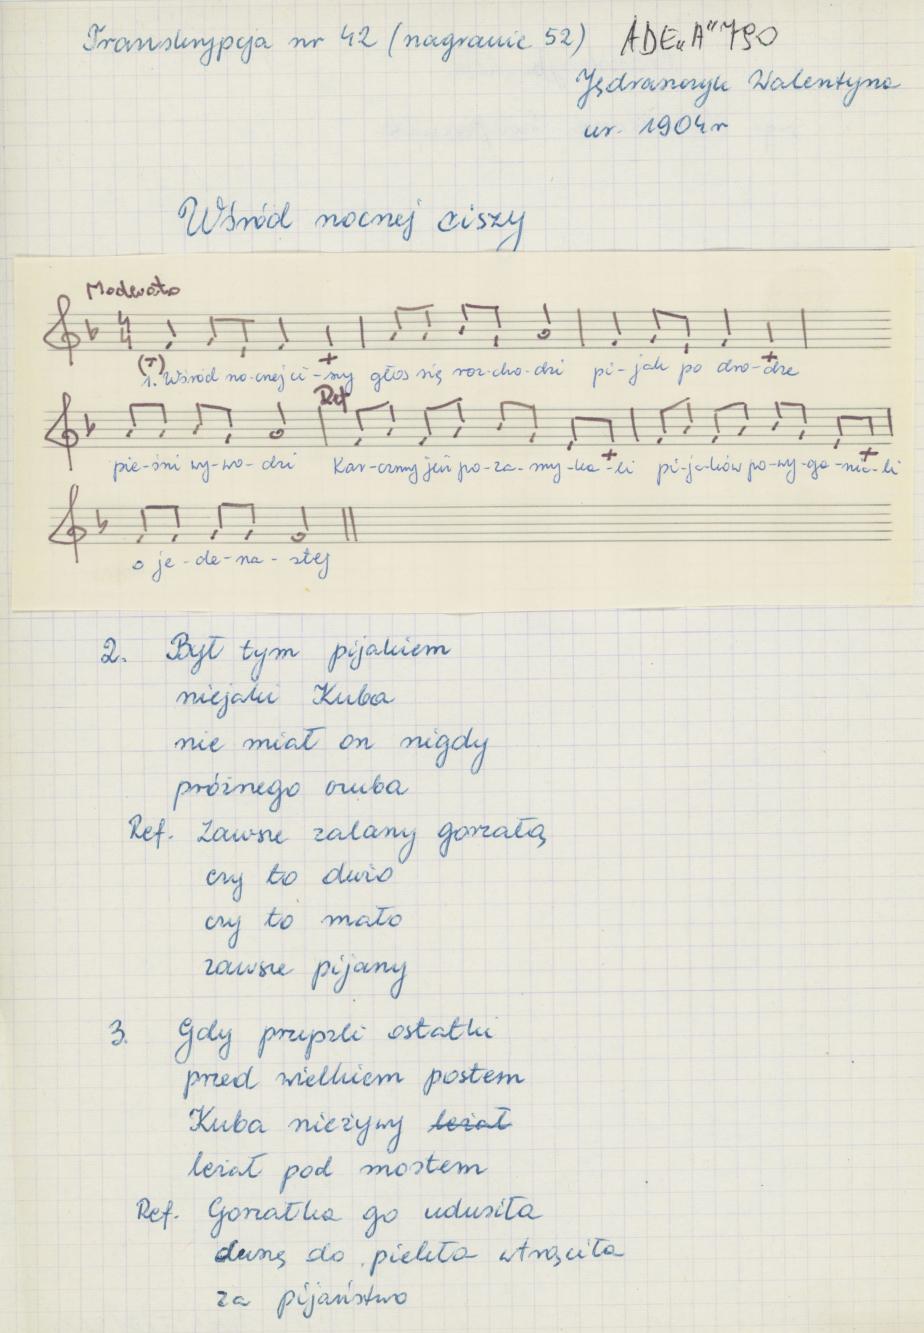 Transkrypcja nr 42 (nagranie 52) ADE„A"790
Walentyna
ur. 1904r
Wśród nocnej ciszy
Moderato
(T)
1. Wśród no-cnej ci-szy głos się roz-cho-dzi pi-jak po dro-dze
Ref
pie-śni wy-wo-dzi Kar-czmy już po-za-my-ka-li pi-ja-ków po-wy-ga-nia-li
o je-de-na-stej
2. Był tym pijakiem
niejaki Kuba
nie miał on nigdy
próżnego czuba
Ref. Zawsze zalany gorzałą
czy to dużo
czy to mało
zawsze pijany
3. Gdy przyszli ostatki
przed wielkiem postem
Kuba nieżywy leżał
leżał pod mostem
Ref. Gorzałka go udusiła
duszę do piekła wtrąciła
za pijaństwo